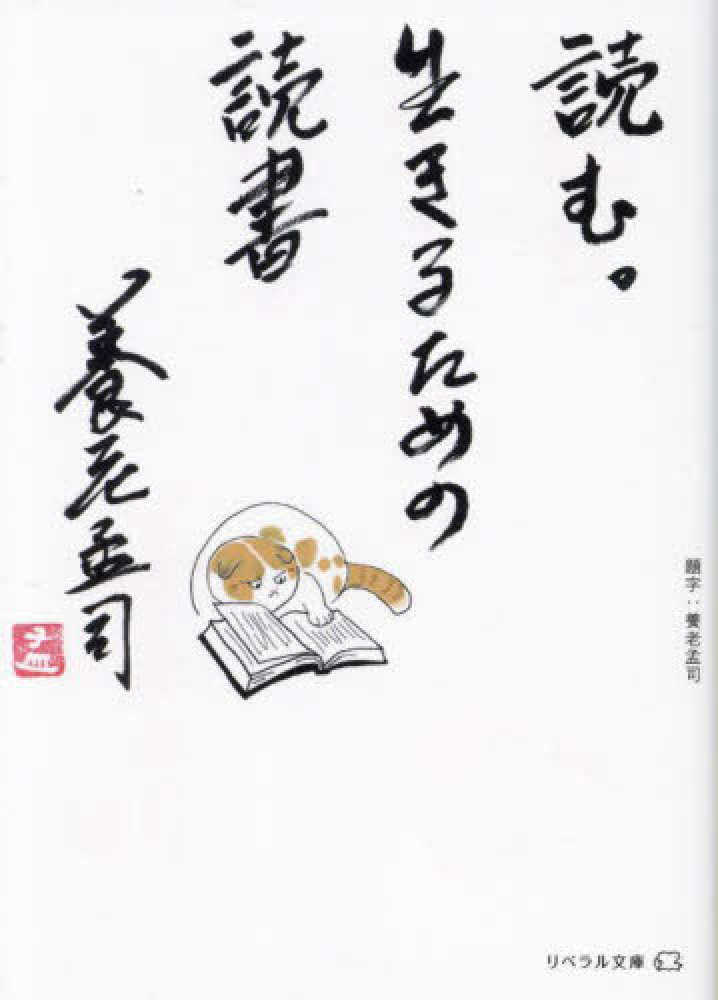 読む。
生きるための
読書
養老孟司
孟
題字：養老孟司
リベラル文庫